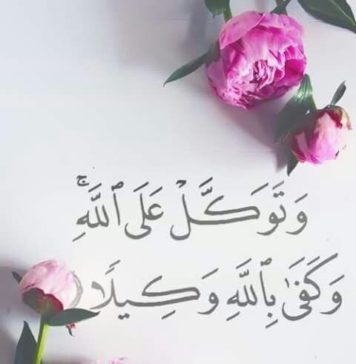 وَتَوَكَّلْ عَلَى ٱللَّهِۚ
وَكَفَىٰ بِٱللَّهِ وَكِيلًا